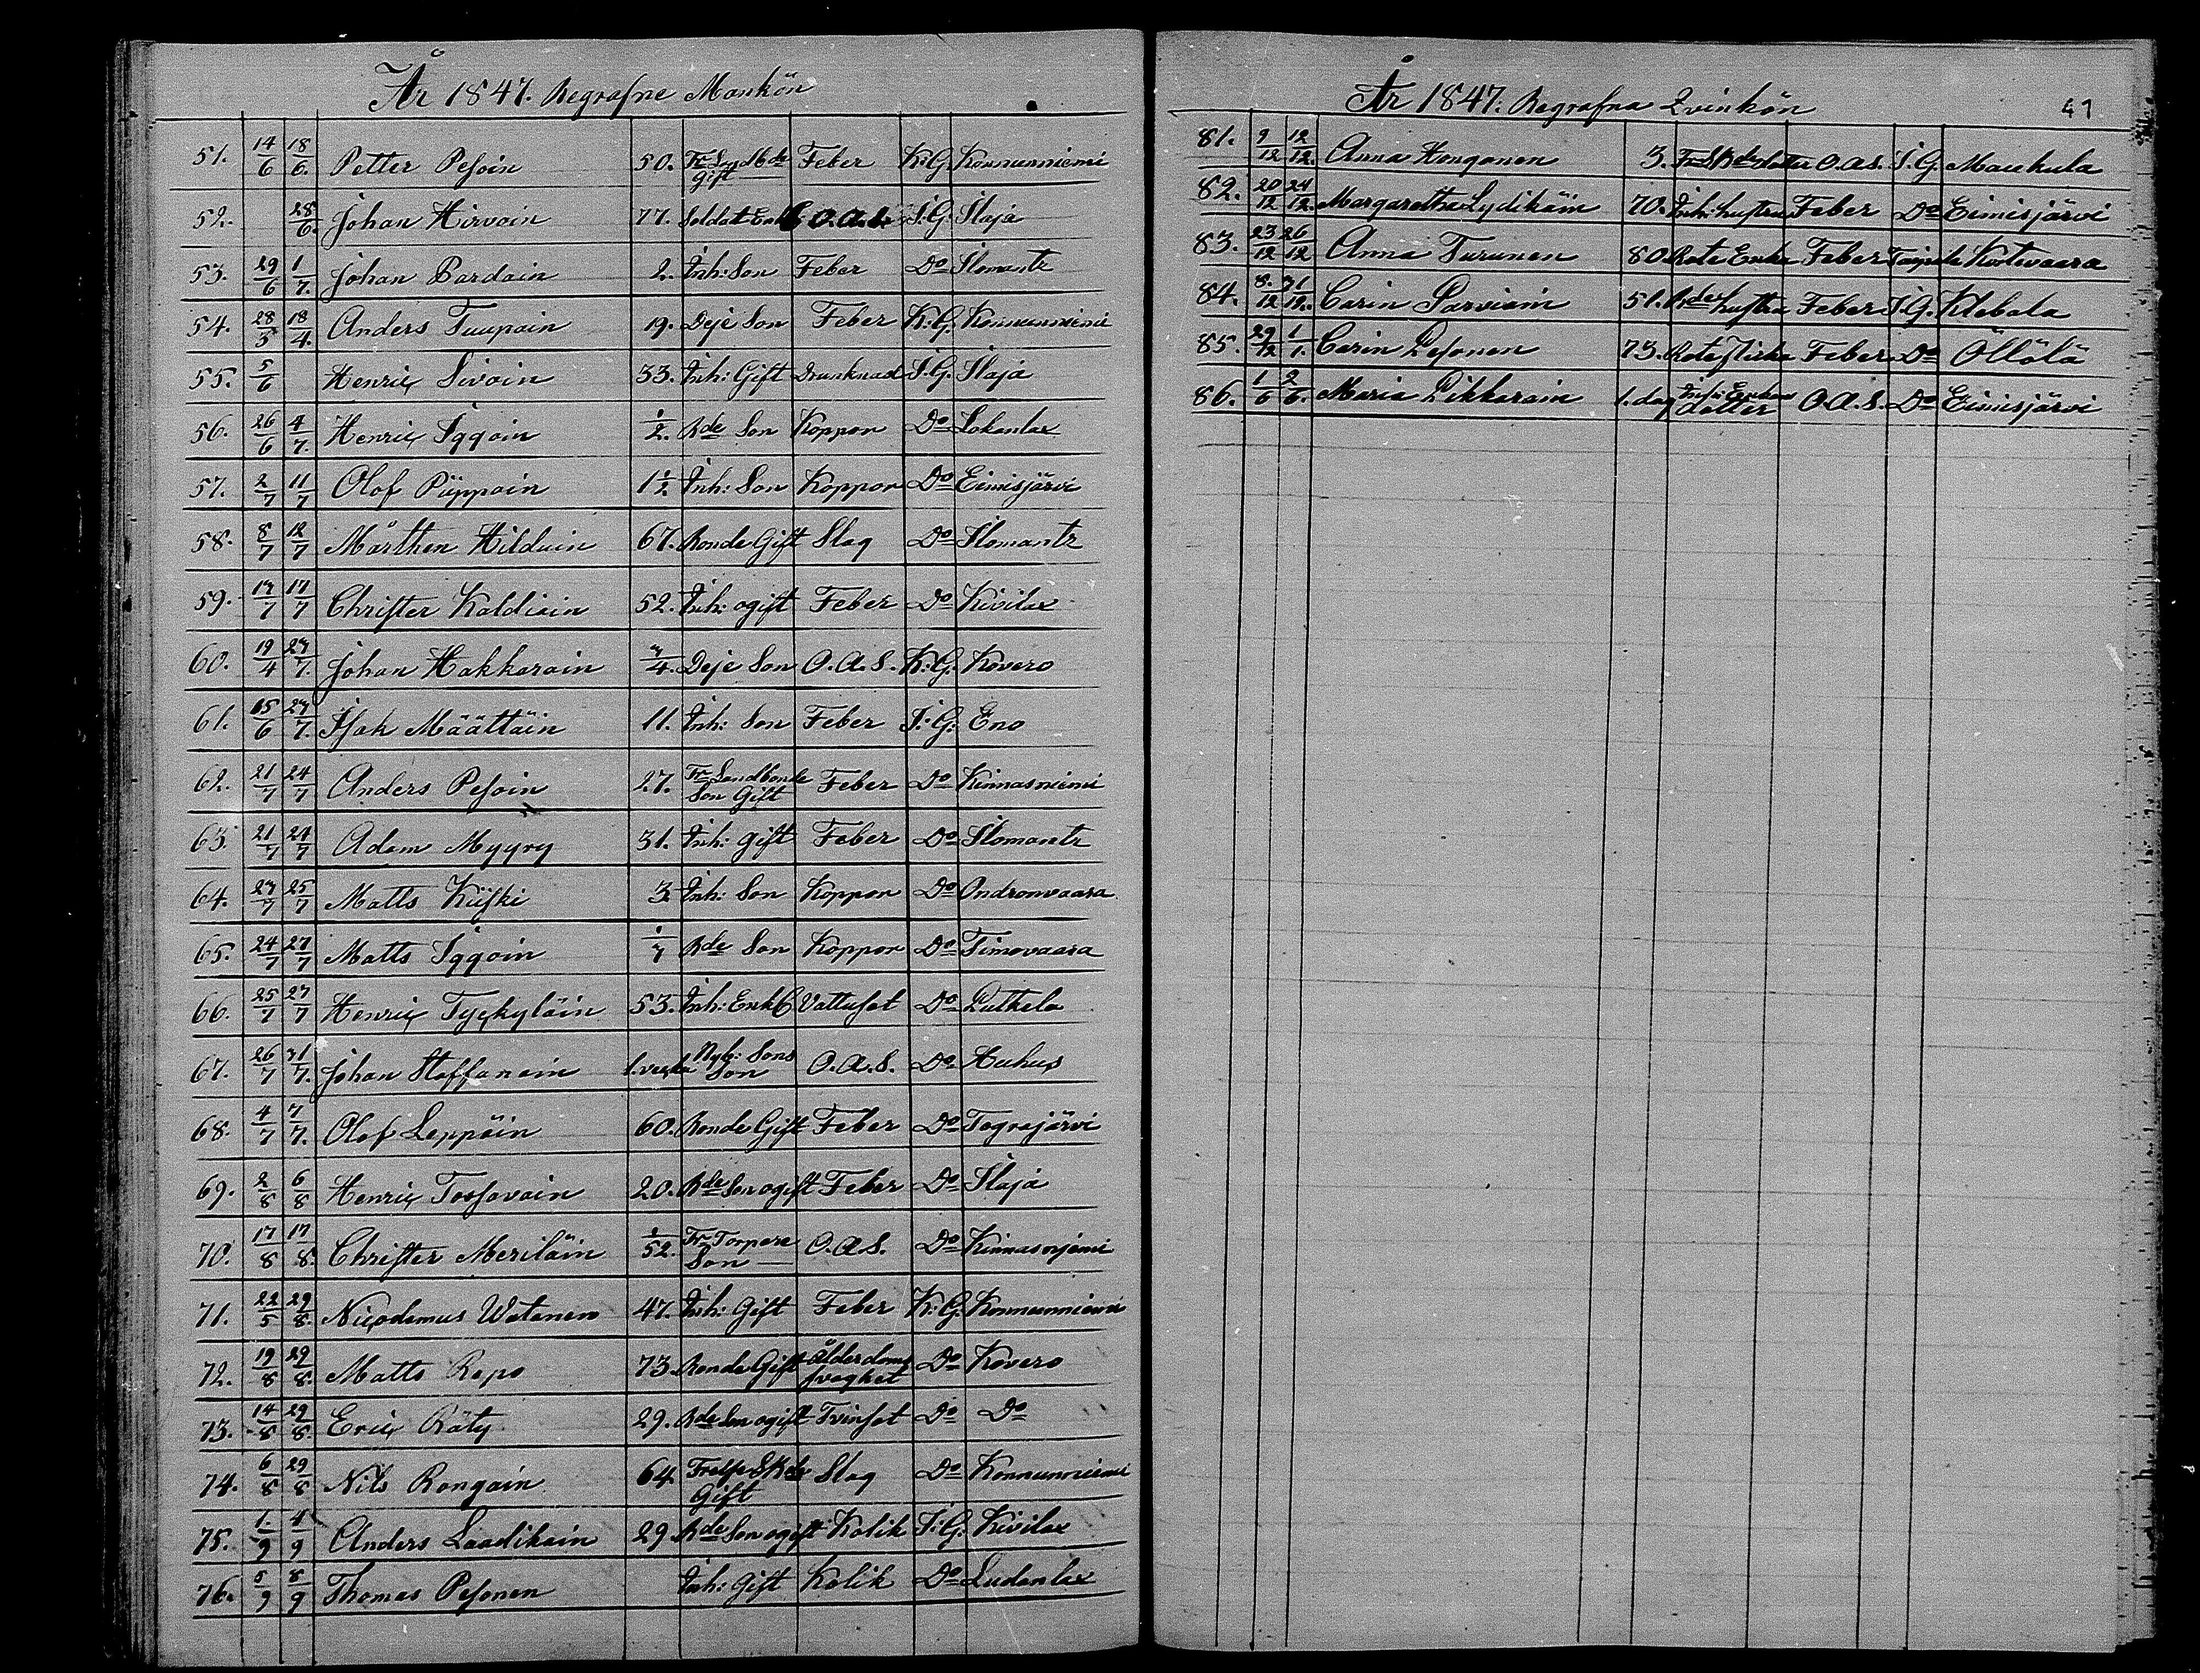 År 1847. Begrafne Mankön
51. 14/6 18/6. Petter Pesoin 50. Fr Landbde Gift Feber K:G. Konnunniemi
52. 28/6. Johan Hirvoin 77. Soldat Enkl O.a.S. I:G. Ilaja
53. 29/6 1/7. Johan Bardain 2. Inh: Son Feber Do Ilomants
54. 28/3 18/4. Anders Tuupain 19. Deje Son Feber K:G. Konnunniemi
55. 5/6 Henric Sivoin 33. Inh: Gift Drunknad I:G. Ilaja
56. 26/6 4/7. Henric Iggoin 1/2. Bde Son Koppor Do Sokanlax
57. 2/7 11/7 Olof Piippoin 1 1/2 Inh: Son Koppor Do Eimisjärvi
58. 8/7 12/7 Mårthen Hilduin 67. Bonde Gift Slag Do Ilomants
59. 13/7 17/7 Christer Kaldiain 52. Inh: ogift Feber Do Kivilax
60. 19/4 23/7. Johan Hakkarain 3/4. Deje Son O.A.S. K:G. Kovero
61. 15/6 23/7. Isak Määttäin 11. Inh: Son Feber I:G: Eno
62. 21/7 24/7 Anders Pesoin 27. Fr Landbonde Son Gift Feber Do Kinnasniemi
63. 21/7 24/7 Adam Myyry 31. Inh: Gift Feber Do Ilomants
64. 23/7 25/7 Matts Kiiski 3. Inh: Son Koppor Do Ondronvaara
65. 24/7 27/7 Matts Iggoin 1/7 Bde Son Koppor Do Timovaara
66. 25/7 27/7 Henric Tyckyläin 53. Inh: Enkl Vattusot Do Putkela
67. 26/7 31/7. Johan Staffanain 1. vecka Nyb: Sons Son O.A.S. Do Huhus
68. 4/7 7/7. Olof Leppäin 60. Bonde Gift Feber Do Tograjärvi
69. 2/8 6/8 Henric Tossavain 20. Bde Son ogift Feber Do Ilaja
70. 17/8 17/8. Christer Meriläin 1/52. Fr Torpare Son O.A.S. Do Kinnasniemi
71. 22/5 29/8. Nicodemus Watanen 47. Inh: Gift Feber K:G. Konnunniemi
72. 19/8 29/8. Matts Repo 73. Bonde Gift Ålderdoms svaghet Do Kovero
73. 14/8 29/8. Eric Räty 29. Bde Son ogift Tvinsot Do Do
74. 6/8 29/8 Nils Rongain 64. Frälse Gift Slag Do Konnunniemi
75. 1/9 4/9 Anders Laadikain 29. Bde Son ogift Kolik I:G. Kivilax
76. 5/9 8/9 Thomas Pesonen Inh: Gift Kolik Do Ludanlax
År 1847. Begrafna Qvinkön 41
81. 9/12 12/12. Anna Hongonen 3. dotter O.A.S. I.G. Maukula
82. 20/12 24/12. Margaretha Lydikäin 70. Inh: hustru Feber Do Eimisjärvi
83. 23/12 26/12 Anna Turunen 80. Rote Enka Feber Taipale Kortevaara
84. 8./12 31/12. Carin Parviain 51. Bde hustru Feber I.G. Klebala
85. 29/12 1/1. Carin Pesonen 73. Rote flicka Feber Do Öllölä
86. 1/6 2/6. Maria Pikkarain 1. dag Inh: Enkans dotter O.A.S. Do Eimisjärvi